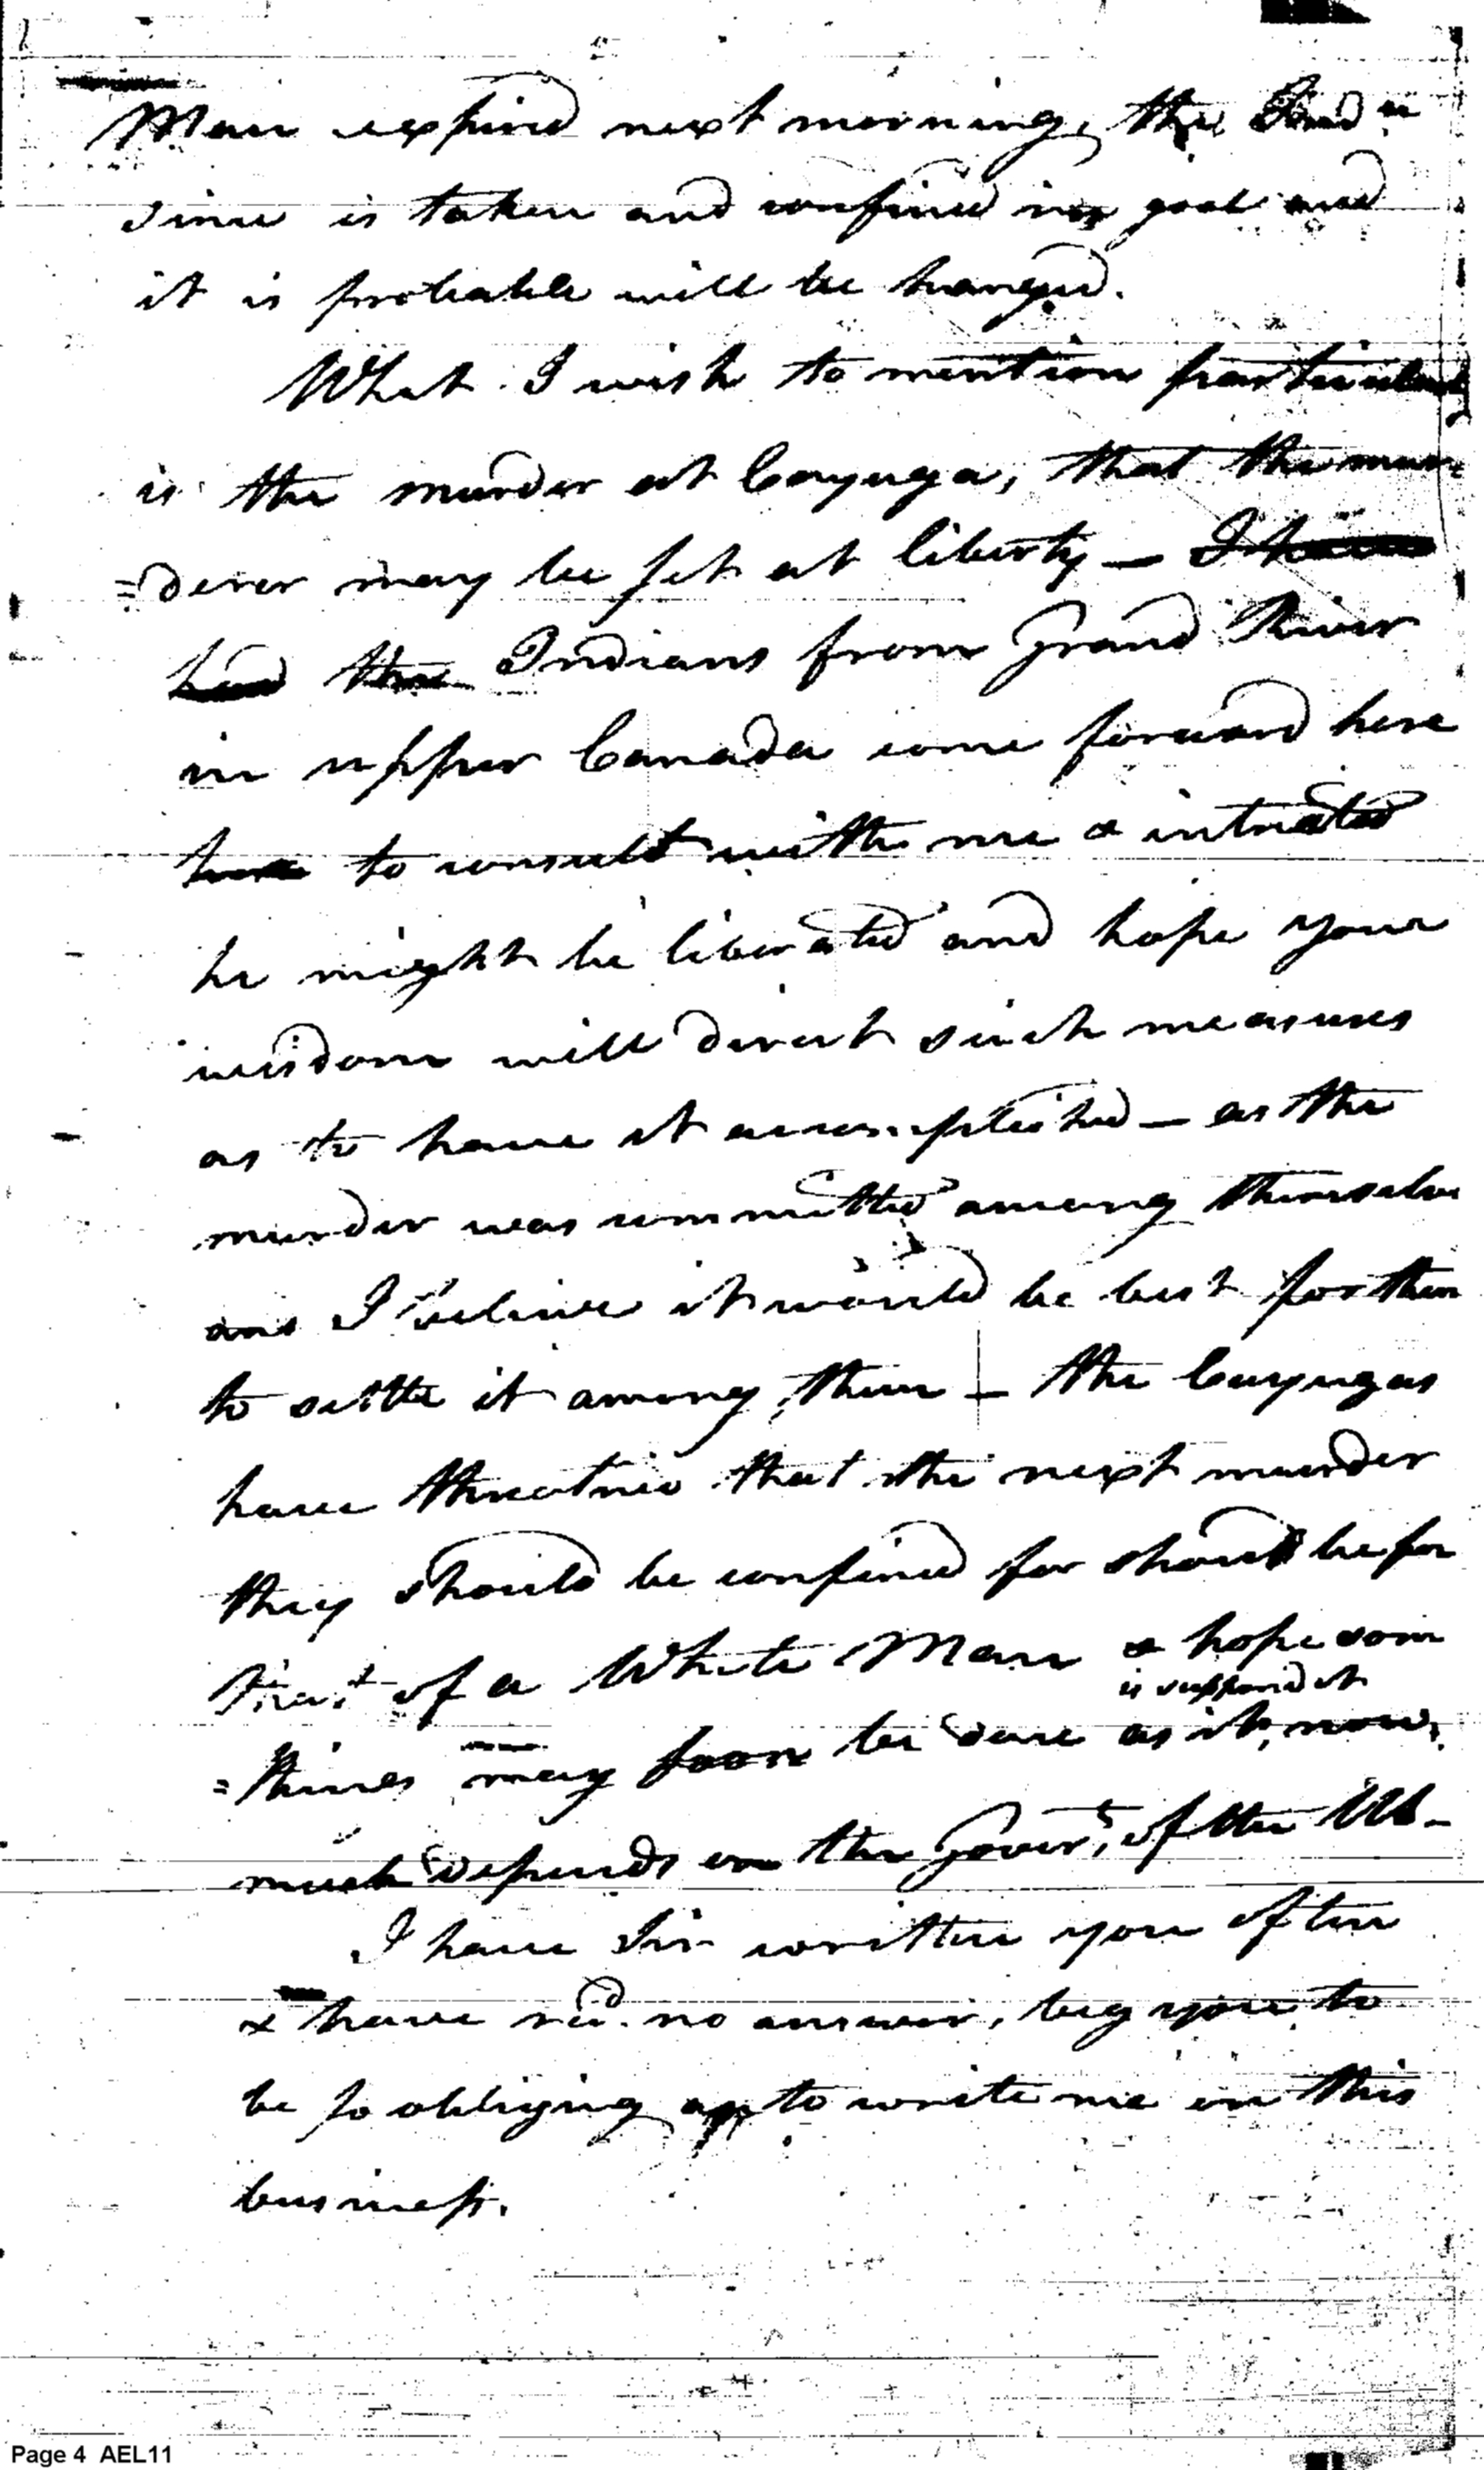 Man expired next morning, the Indn
since is taken and confined in goal and
it is probable will be hanged.
What I wish to mention particularly
is the murder at Cayuga, that the mur=
=derer may be set at liberty — I have
had the Indians from Grand River
in upper Canada come forward here
here to consult with me & intreated
he might be liberated and hope your
wisdom will direct such measures
as to have it accomplished — as the
murder was committed among themselves
and I believe it would be best for them
to settle it among them — the Cayugas
have threatned that the next murder
they should be confined for should be for
that of a White Man & hope som
is supposed it
=times may soon be done as it now,
much depends on the Govert. of the US—
I have Sir written you often
& have recd. no answer, beg you to
be so obliging as to write me on this
business.
Page 4 AEL11